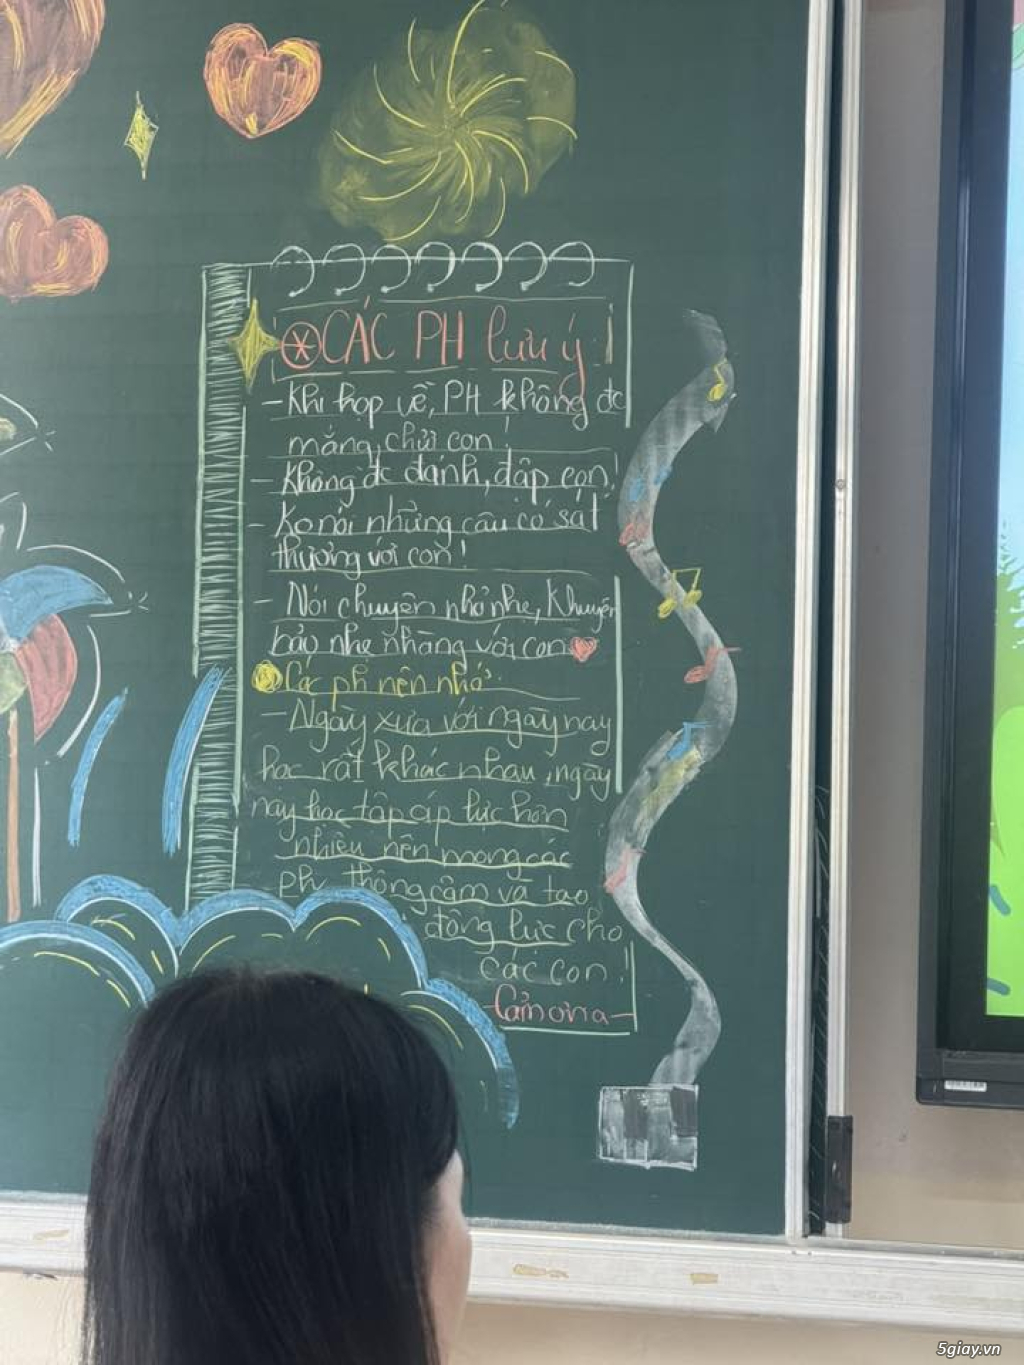 CÁC PH lưu ý!
- Khi họp về, PH không đc
mắng, chửi con!
- Không đc đánh, đập con!
- Ko nói những câu có sát
thương với con!
- Nói chuyện nhỏ nhẹ, khuyên
bảo nhẹ nhàng với con
Các ph nên nhớ:
- Ngày xưa với ngày nay
học rất khác nhau, ngày
nay học tập áp lực hơn
nhiều nên mong các
ph thông cảm và tạo
động lực cho
các con!
- Cảm ơn -
5giay.vn